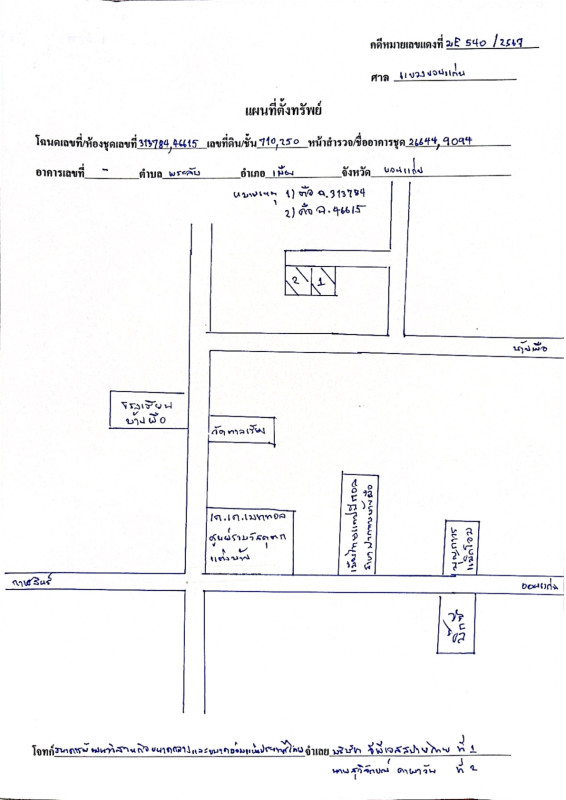 คดีหมายเลขแดงที่ ผบE 540 /2567
ศาล แขวงขอนแก่น
แผนที่ตั้งทรัพย์
โฉนดเลขที่/ห้องชุดเลขที่ 313784,46615 เลขที่ดิน/ชั้น 710,250 หน้าสำรวจ/ชื่ออาคารชุด 26644,9094
อาคารเลขที่ - ตำบล พระลับ อำเภอ เมือง จังหวัด ขอนแก่น
หมายเหตุ 1) คือ ฉ.313784
2) คือ ฉ.46615
2 1
บ้านผือ
โรงเรียน
บ้านผือ
วัดตาลเรียง
เค.เค.เมททอล
ศูนย์รวมวัสดุตก
แต่งบ้าน
เมืองไทยแคปปิตอล
สาขา
กาฬสินธุ์
ขอนแก่น
โจทก์ ธนาคารพัฒนาวิสาหกิจขนาดกลางและขนาดย่อมแห่งประเทศไทย จำเลย บริษัท ที่ 1
นาย ที่ 2